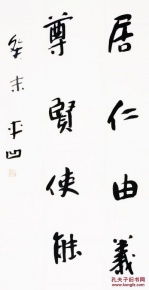 居仁由義
尊賢使能
癸未平凹
孔夫子旧书网